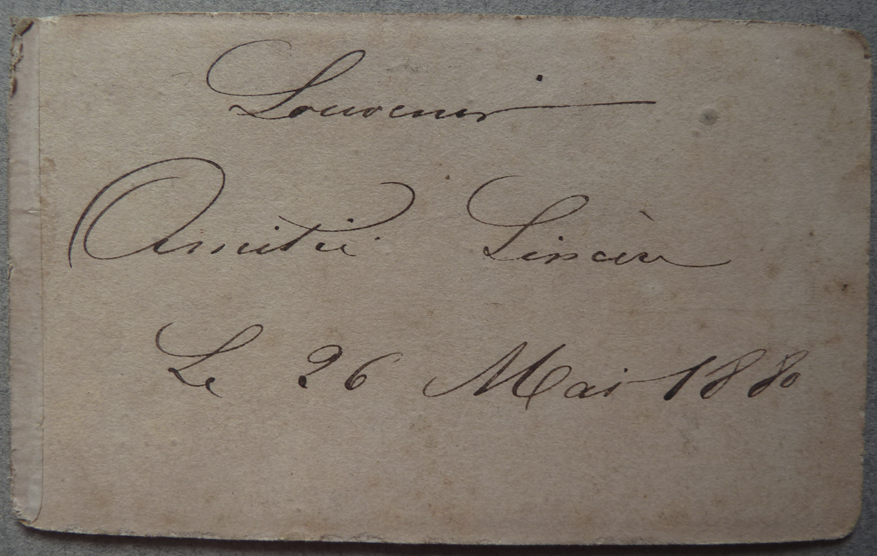 Souvenir
Amitié Sincère
Le 26 Mai 1880